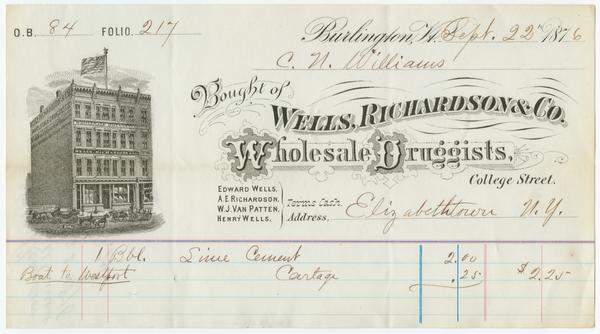 O.B. 84 FOLIO. 217
Burlington, Vt. Sept. 22" 1876
C. N. Williams
Bought of
WELLS, RICHARDSON & CO.
Wholesale Druggists,
College Street.
EDWARD WELLS,
A.E. RICHARDSON,
W.J. VAN PATTEN,
HENRY WELLS.
Terms Cash.
Address, Elizabethtown N.Y.
1 Bbl. Lime Cement 2.00
Boat to Westport Cartage .25 $2.25